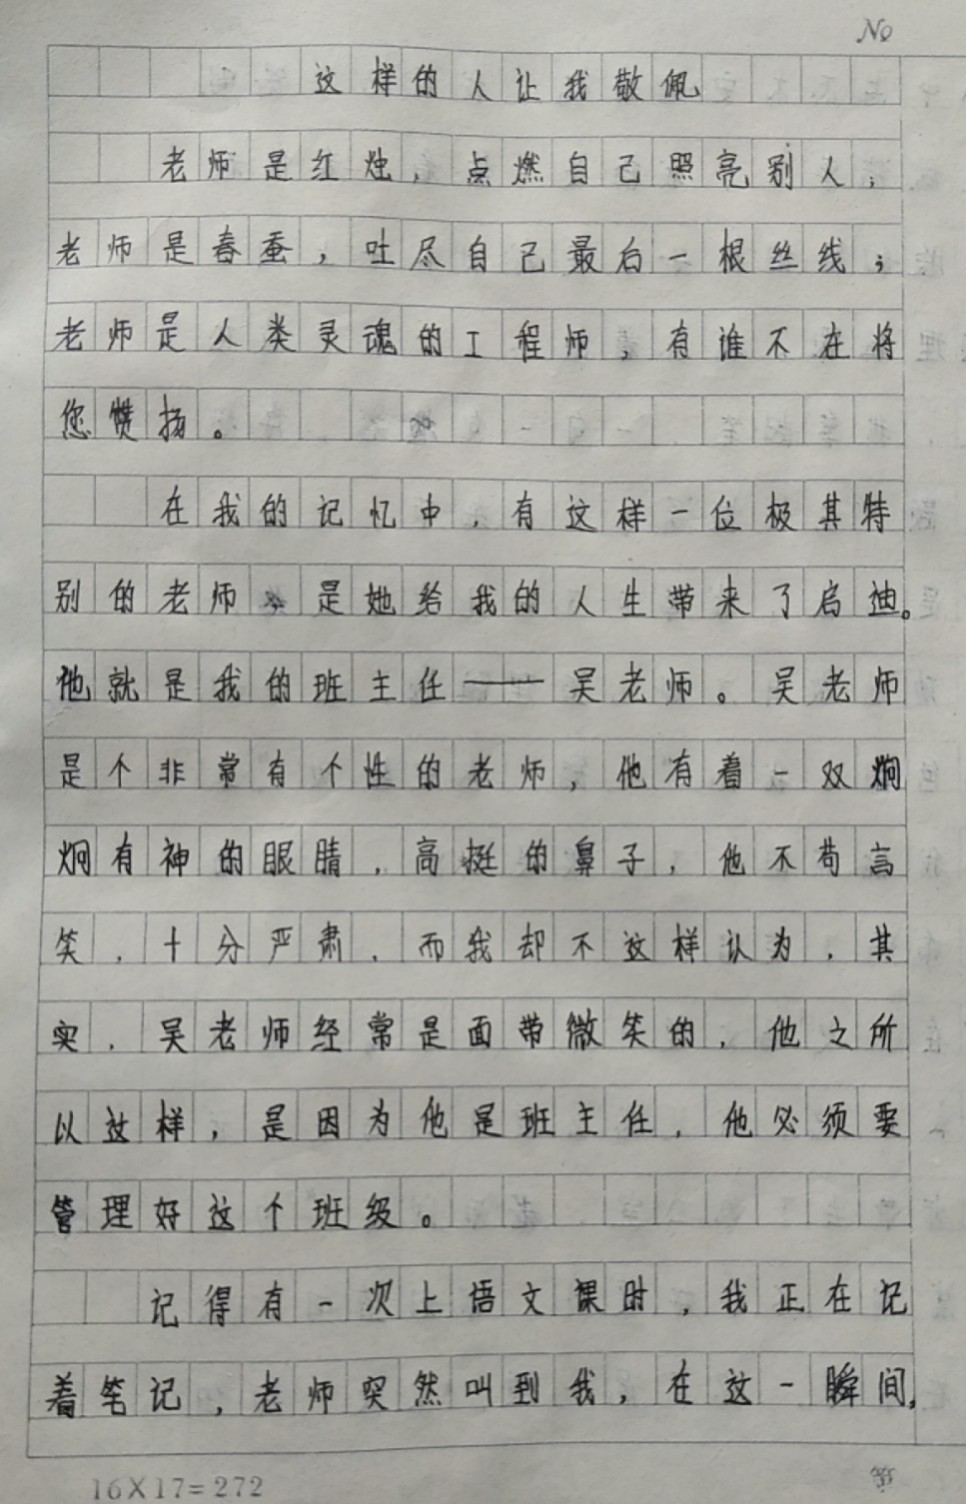 No
这样的人让我敬佩
老师是红烛，点燃自己照亮别人；
老师是春蚕，吐尽自己最后一根丝线；
老师是人类灵魂的工程师，有谁不在将
您赞扬。
在我的记忆中，有这样一位极其特
别的老师 是她给我的人生带来了启迪。
他就是我的班主任——吴老师。吴老师
是个非常有个性的老师，他有着一双炯
炯有神的眼睛，高挺的鼻子，他不苟言
笑，十分严肃，而我却不这样认为，其
实，吴老师经常是面带微笑的，他之所
以这样，是因为他是班主任，他必须要
管理好这个班级。
记得有一次上语文课时，我正在记
着笔记，老师突然叫到我，在这一瞬间，
16×17=272
第